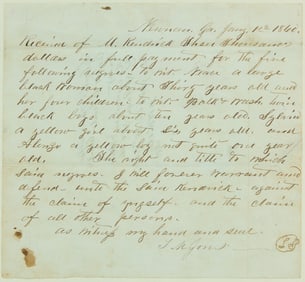 Newnan, Ga, Jany. 10th 1860.
Received of M. Kendrick Three Thousand
dollars in full payment for the five
following negroes - to wit a large
black woman about thirty years old and
her four children - to wit and Wash, twin
black boys about ten years old, Sylvia
a yellow girl about Six years old and
Alonzo a yellow boy not quite one year
old. The right and title to which
said negroes I will forever warrant and
defend unto the said Kendrick - against
the claim of myself - and the claim
of all other persons.
As witness my hand and seal.